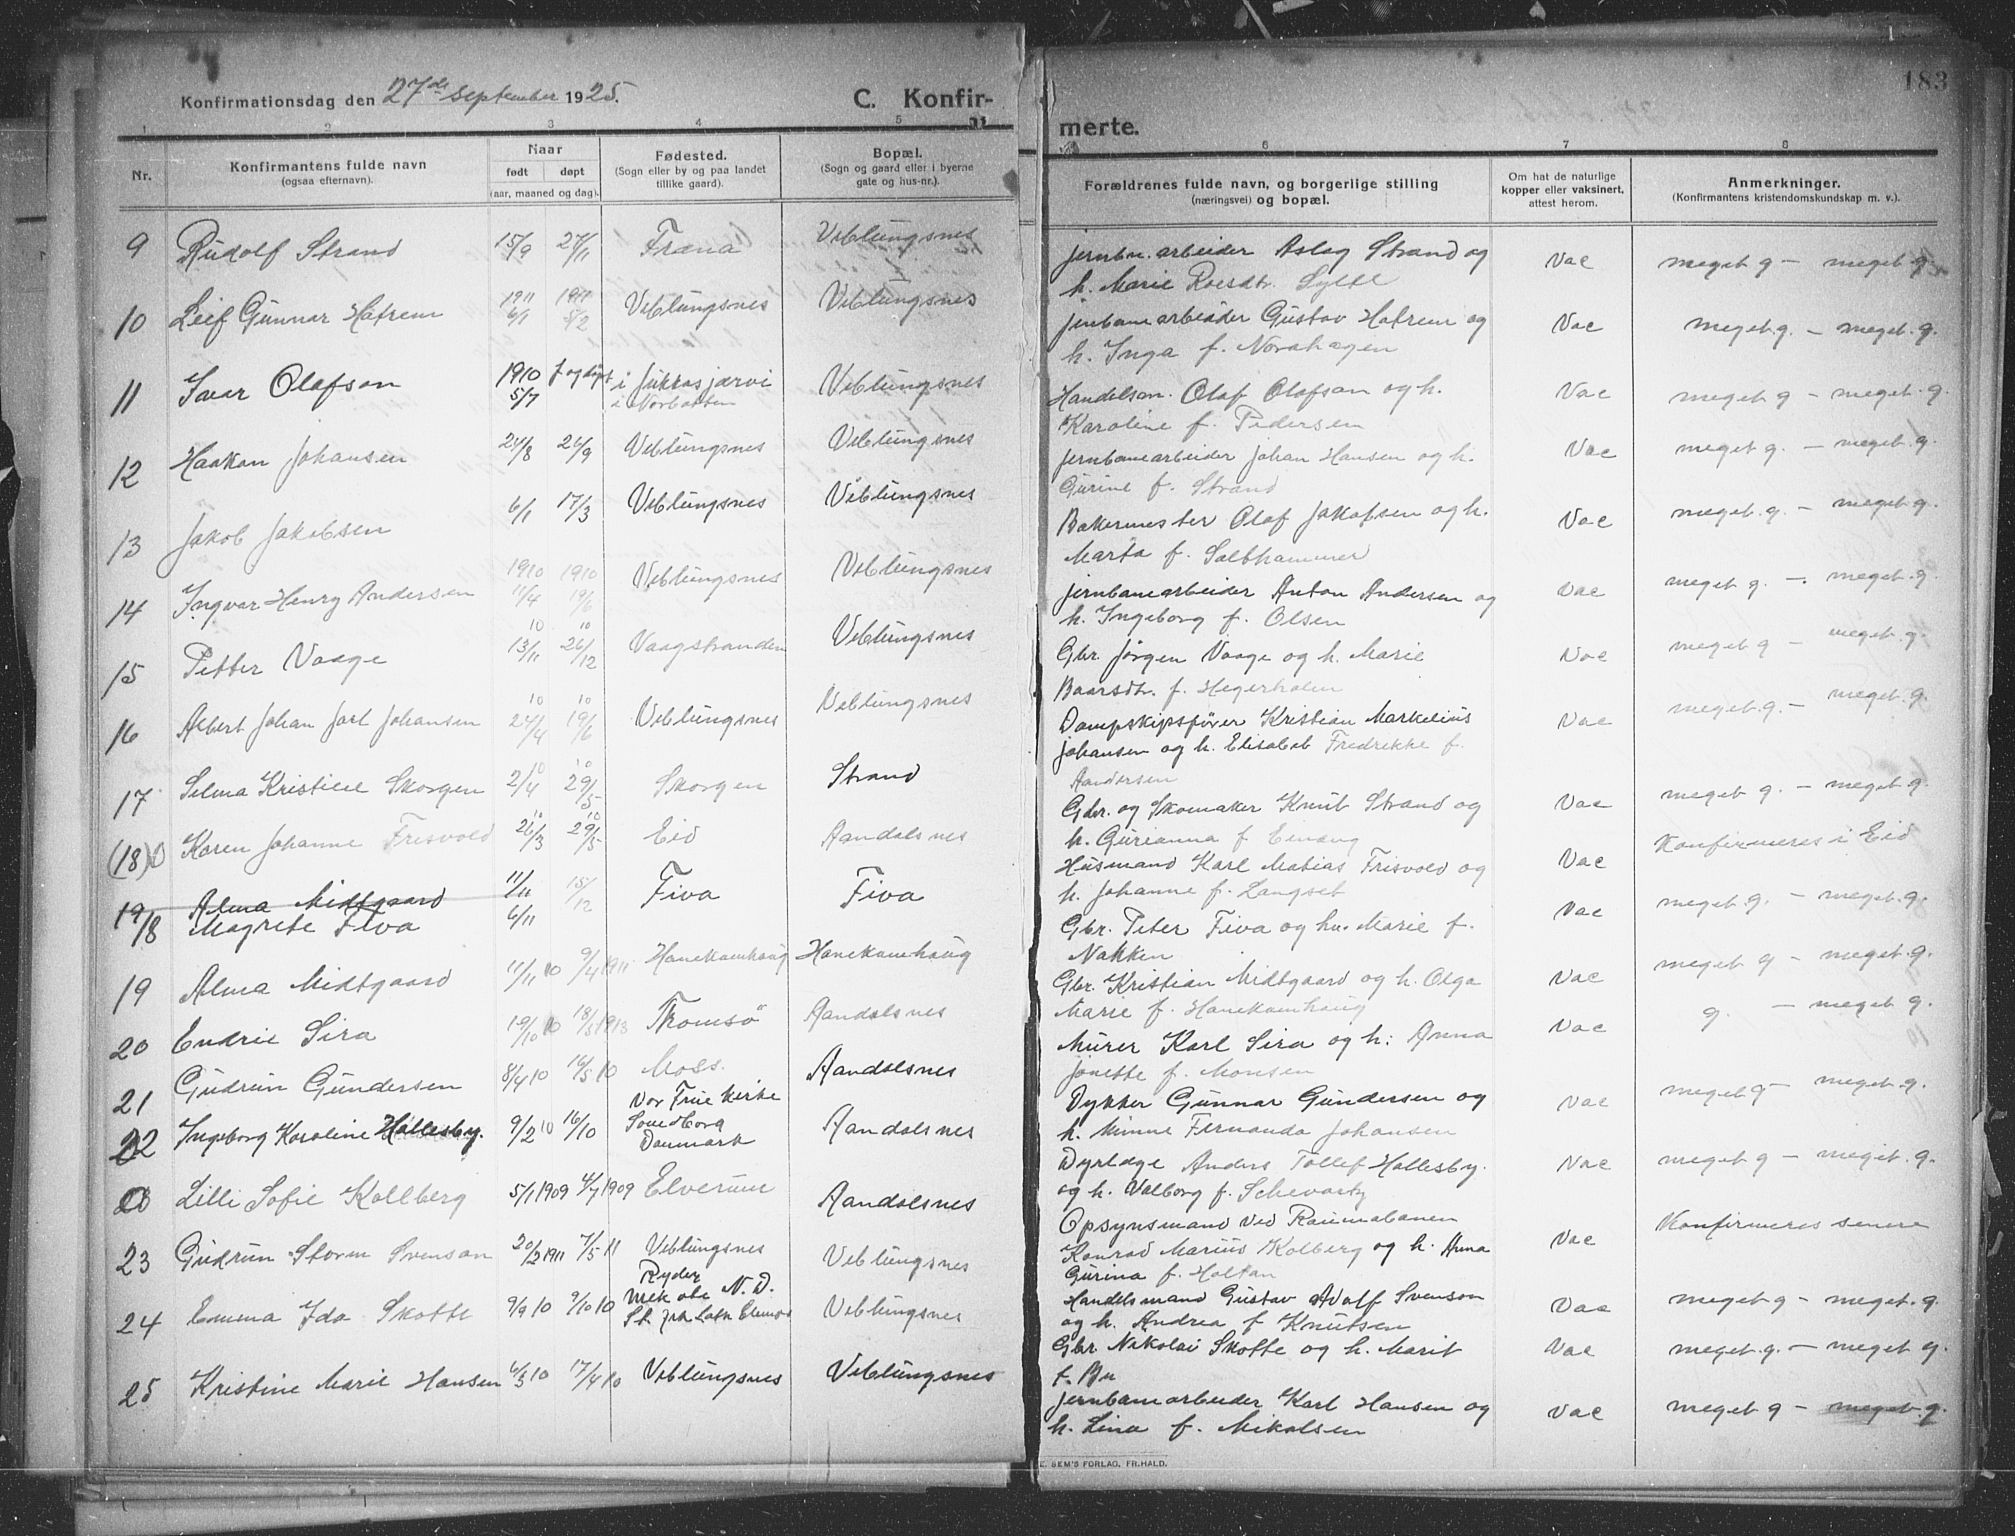 Konfirmationsdag den 27de september 1925.
C. Konfir-
1 2 3 4 5
Nr.
Konfirmantens fulde navn
(ogsaa efternavn).
Naar
født døpt
(aar, maaned og dag).
Fødested.
(Sogn eller by og paa landet
tillike gaard).
Bopæl.
(Sogn og gaard eller i byerne
gate og hus-nr.).
9 Rudolf Strand 15/9 27/11 Fræna Veblungsnes
10 Leif Gunnar Hafrem 1911 6/1 1911 5/2 Veblungsnes Veblungsnes
11 Ivar Olafson 1910 5/7 f og døpt i Jukkasjærvi Veblungsnes
i Norbotten
12 Haakon Johansen 24/8 26/9 Veblungsnes Veblungsnes
13 Jakob Jakobsen 6/1 17/3 Veblungsnes Veblungsnes
14 Ingvar Henry Andersen 1910 11/4 1910 19/6 Veblungsnes Veblungsnes
15 Petter Vaage 10 13/11 10 26/12 Vaagstranden Veblungsnes
16 Albert Johan Jarl Johansen 10 24/4 10 19/6 Veblungsnes Veblungsnes
17 Selma Kristine Skorgen 10 2/4 10 29/5 Skorgen Strand
(18) Karen Johanne Frisvold 10 26/3 10 29/5 Eid Aandalsnes
19/8 Alma Midtgaard 11/11 15/12 Fiva Fiva
Magrete Fiva 6/11
19 Alma Midtgaard 11/11 10 9/4 1911 Hanekamhaug Hanekamhaug
20 Endrie Sira 19/10 10 18/5 1913 Tromsø Aandalsnes
21 Gudrun Gundersen 8/4 10 16/5 10 Moss. Aandalsnes
Vor Frue Kirke
22 Ingeborg Karoline Hallesby. 9/2 10 16/10 Svendborg Aandalsnes
Danmark
Lilli Sofie Kollberg 5/1 1909 4/7 1909 Elverum Aandalsnes
23 Gudrun Storm Svenson 20/2 1911 7/5 11 Veblungsnes Veblungsnes
Ryder
24 Emma Ida Skotte 9/9 10 9/10 10 N. D. Veblungsnes
25 Kristine Marie Hansen 6/3 10 17/4 10 Veblungsnes Veblungsnes
183
merte.
6 7 8
Forældrenes fulde navn, og borgerlige stilling
(næringsvei) og bopæl.
Om hat de naturlige
kopper eller vaksinert,
attest herom.
Anmerkninger.
(Konfirmantens kristendomskundskap m. v.).
jernbn. arbeider Aslag Strand og Vac meget g – meget g.
h. Marie Roesdtr. Sylte
jenbanearbeider Gustav Hafrem og Vac meget g. – meget g.
h. Inga f. Norahagen
Handelsm. Olaf Olafson og h. Vac meget g – meget g.
Karoline f. Pedersen
jernbanearbeider Johan Hansen og h. Vac meget g. – meget g.
Gurine f. Strand
Bakermester Olaf Jakobsen og h. Vac meget g. – meget g.
Marta f. Saltkammer
jernbanearbeider Anton Andersen og Vac meget g. – meget g.
h. Ingeborg f. Olsen
Gbr. Jørgen Vaage og h. Marie Vac meget g – meget g.
Baarsdtr. f. Hegerholm
Dampskipsfører Kristian Markelius Vac meget g. – meget g.
Johansen og h. Elisabet Fredrekke f.
Aandersen
Gbr. og Skomaker Knut Strand og Vac meget g. – meget g.
h. Gurianna f Einang
Husmand Karl Matias Frisvold og Vac Konfirmeres i Eid
h. Johanne f. Langset
Gbr. Peter Fiva og hu. Marie f. Vac meget g. – meget g.
Nakken
Gbr. Kristian Midtgaard og h. Olga Vac meget g – meget g.
Marie f. Hanekamhaug
Murer Karl Sira og h. Anna Vac g. – meget g.
Jonette f. Monsen
Dykker Gunnar Gundersen og Vac meget g – meget g.
h. Minne Fernanda Johansen
Dyrlæge Anders Tollef Hallesby. Vac meget g – meget g.
og h. Valborg f. Schevartz
Opsynsmand ved Raumabanen Vac Konfirmeres senere
Konrad Marius Kolberg og h. Anna
Gurina f. Holtan
Handelsmand Gustav Adolf Svenson Vac meget g – meget g.
og h. Andrea f Knutsen
Gbr Nikolai Skotte og h. Marit Vac meget g. – meget g.
f. Bu
jernbanearbeider Karl Hansen og Vac meget g – meget g.
h. Lina f. Mikalsen
E. SEM'S FORLAG, FR.HALD.